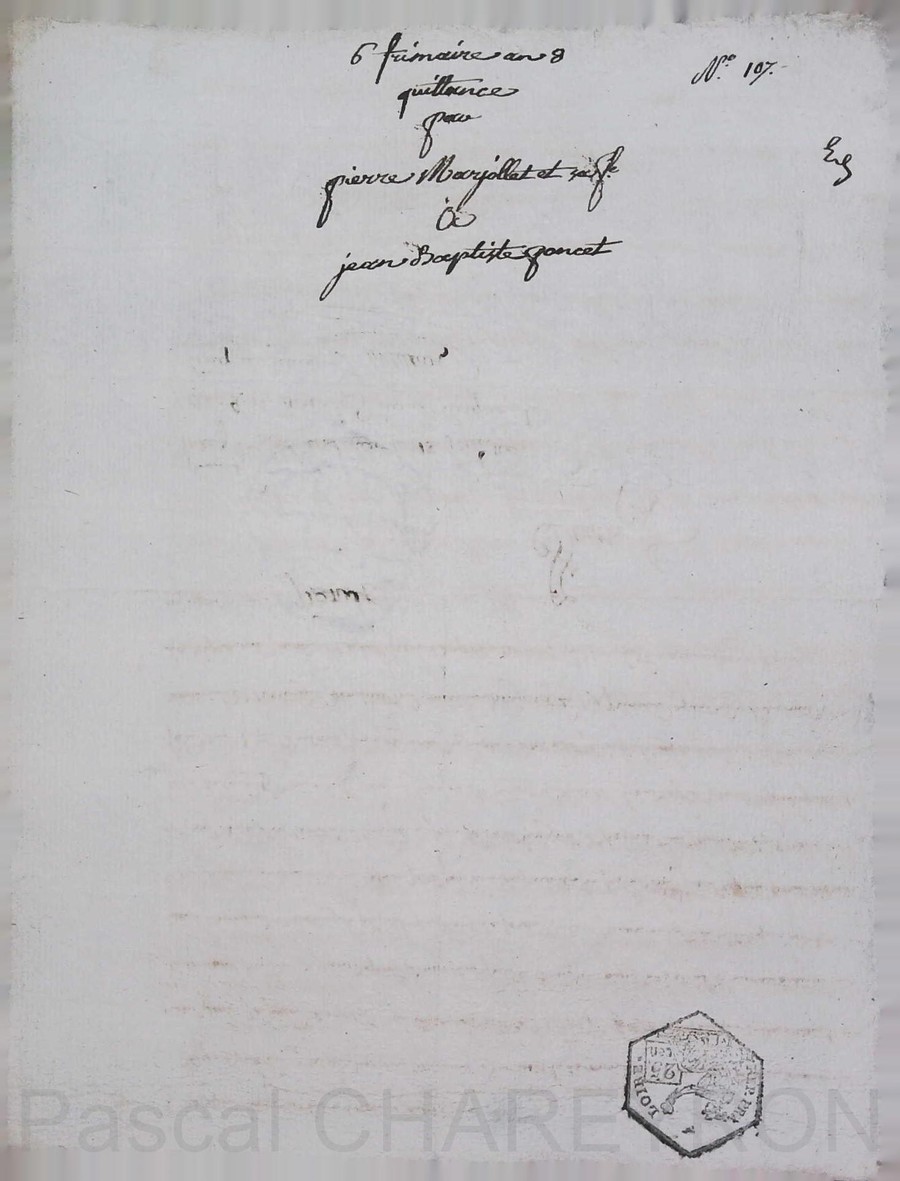 6 frimaire an 8
N.º 107.
quittance
par
pierre Marjollet et sa fe
Eg
à
jean Baptiste poncet
LOIRE.
25
CEN
Pascal CHAREYRON